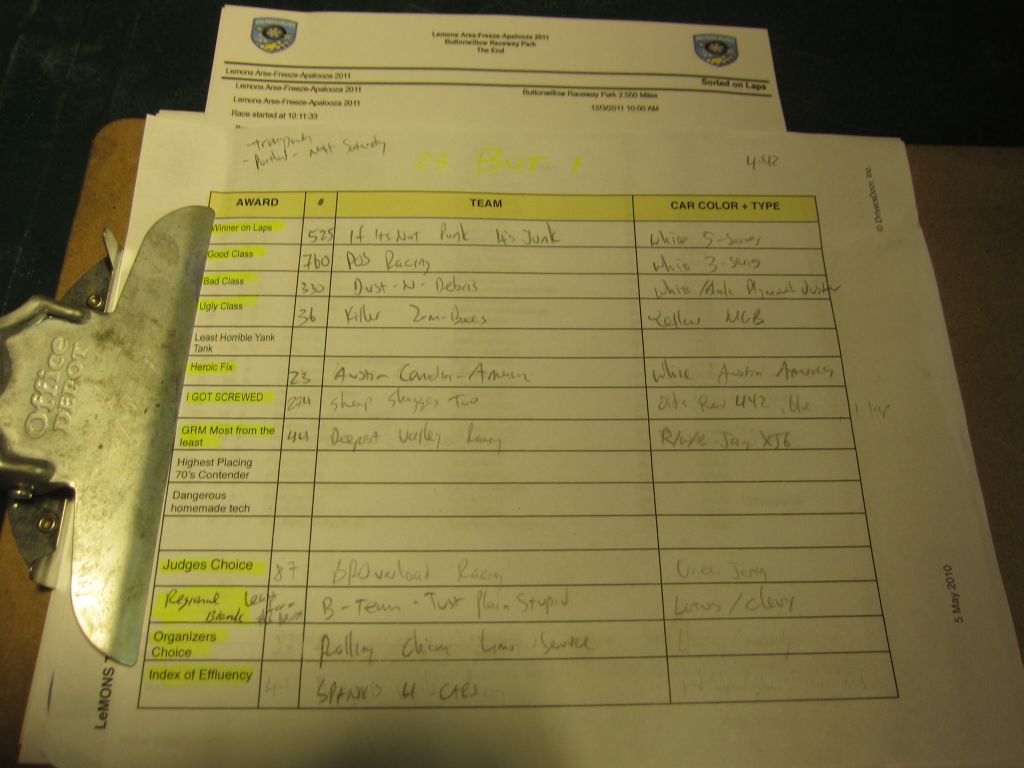 Lemons Arse-Freeze-Apalooza 2011
Buttonwillow Raceway Park
The End
Lemons Arse-Freeze-Apalooza 2011
Sorted on Laps
Lemons Arse-Freeze-Apalooza 2011
Buttonwillow Raceway Park 2.550 Miles
Lemons Arse-Freeze-Apalooza 2011
12/3/2011 10:00 AM
Race started at 10:11:33
23 But 1
4-42
© DriversDoor, Inc.
AWARD # TEAM CAR COLOR + TYPE
Winner on Laps 525 If Its Not Punk It's Junk White 5-series
Good Class 760 POS Racing White 3-series
Bad Class 330 Dust-N-Debris White Plymouth Duster
Ugly Class 36 Killer Zom-Bees Yellow MGB
Least Horrible Yank
Tank
Heroic Fix 23 Austin White Austin America
I GOT SCREWED 224 442
GRM Most from the
least 44 Deepest Racing Jag XJ6
Highest Placing
70's Contender
Dangerous
homemade tech
Judges Choice 87 Overload Racing
Regional B-Team - Just Plain Stupid Lotus / Chevy
Organizers
Choice Rolling Limo Service
Index of Effluency SPANK'S 4 CARS
Office
DEPOT
LeMONS T
5 May 2010